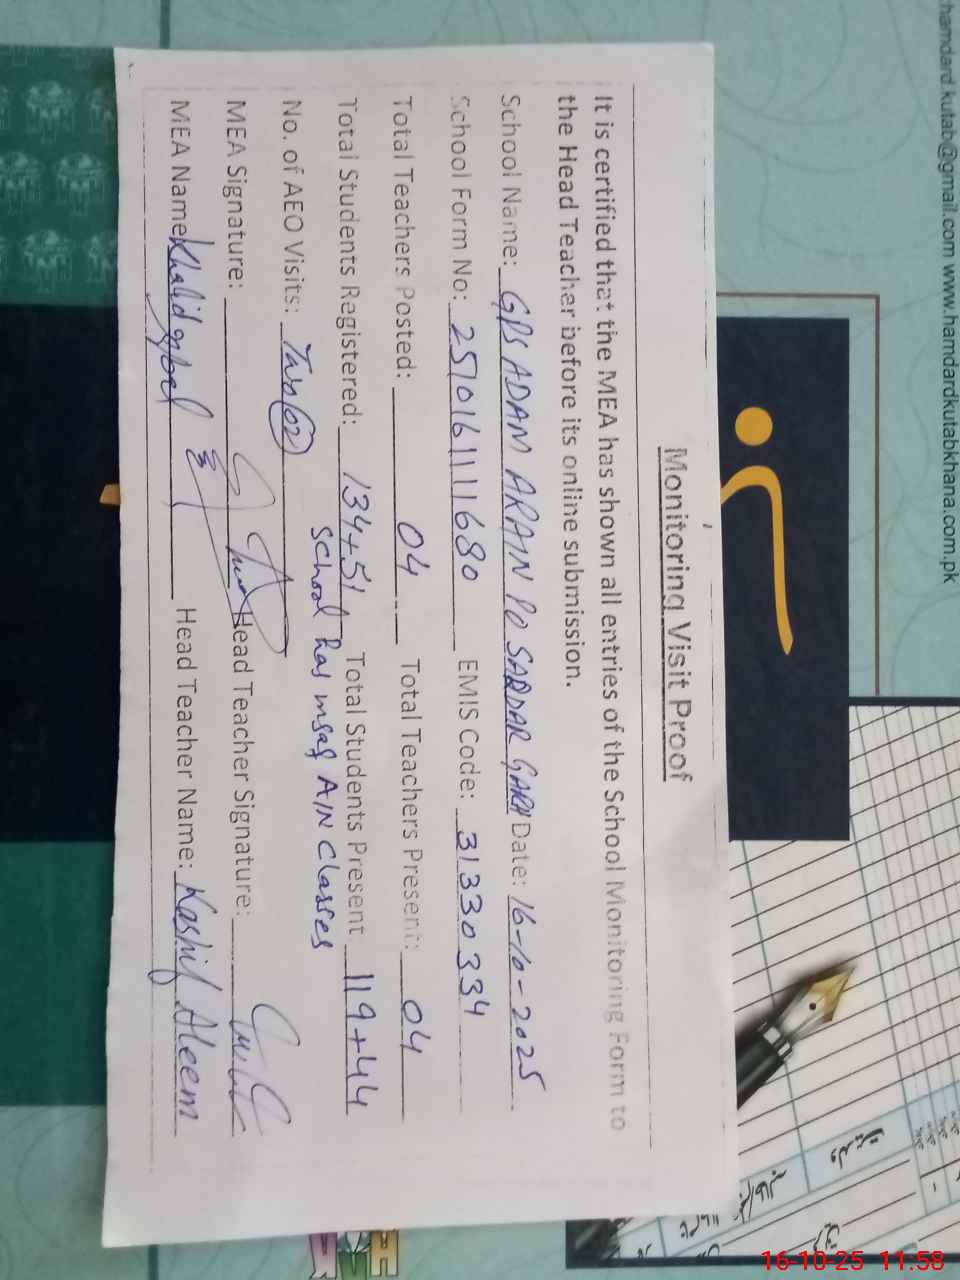 hamdard.kutab@gmail.com www.hamdardkutabkhana.com.pk
Monitoring Visit Proof
It is certified that the MEA has shown all entries of the School Monitoring Form to
the Head Teacher before its online submission.
School Name: GPS ADAM ARAIN PO SARDAR GARH Date: 16-10-2025
School Form No: 2510161111680 EMIS Code: 31330334
Total Teachers Posted: 04 Total Teachers Present: 04
Total Students Registered: 134+51 Total Students Present 119+44
School has insaf A/N Classes
No. of AEO Visits: Two (02)
MEA Signature: Head Teacher Signature:
MEA Name Khalid Iqbal Head Teacher Name: Kashif Aleem
16-10-25 11:58